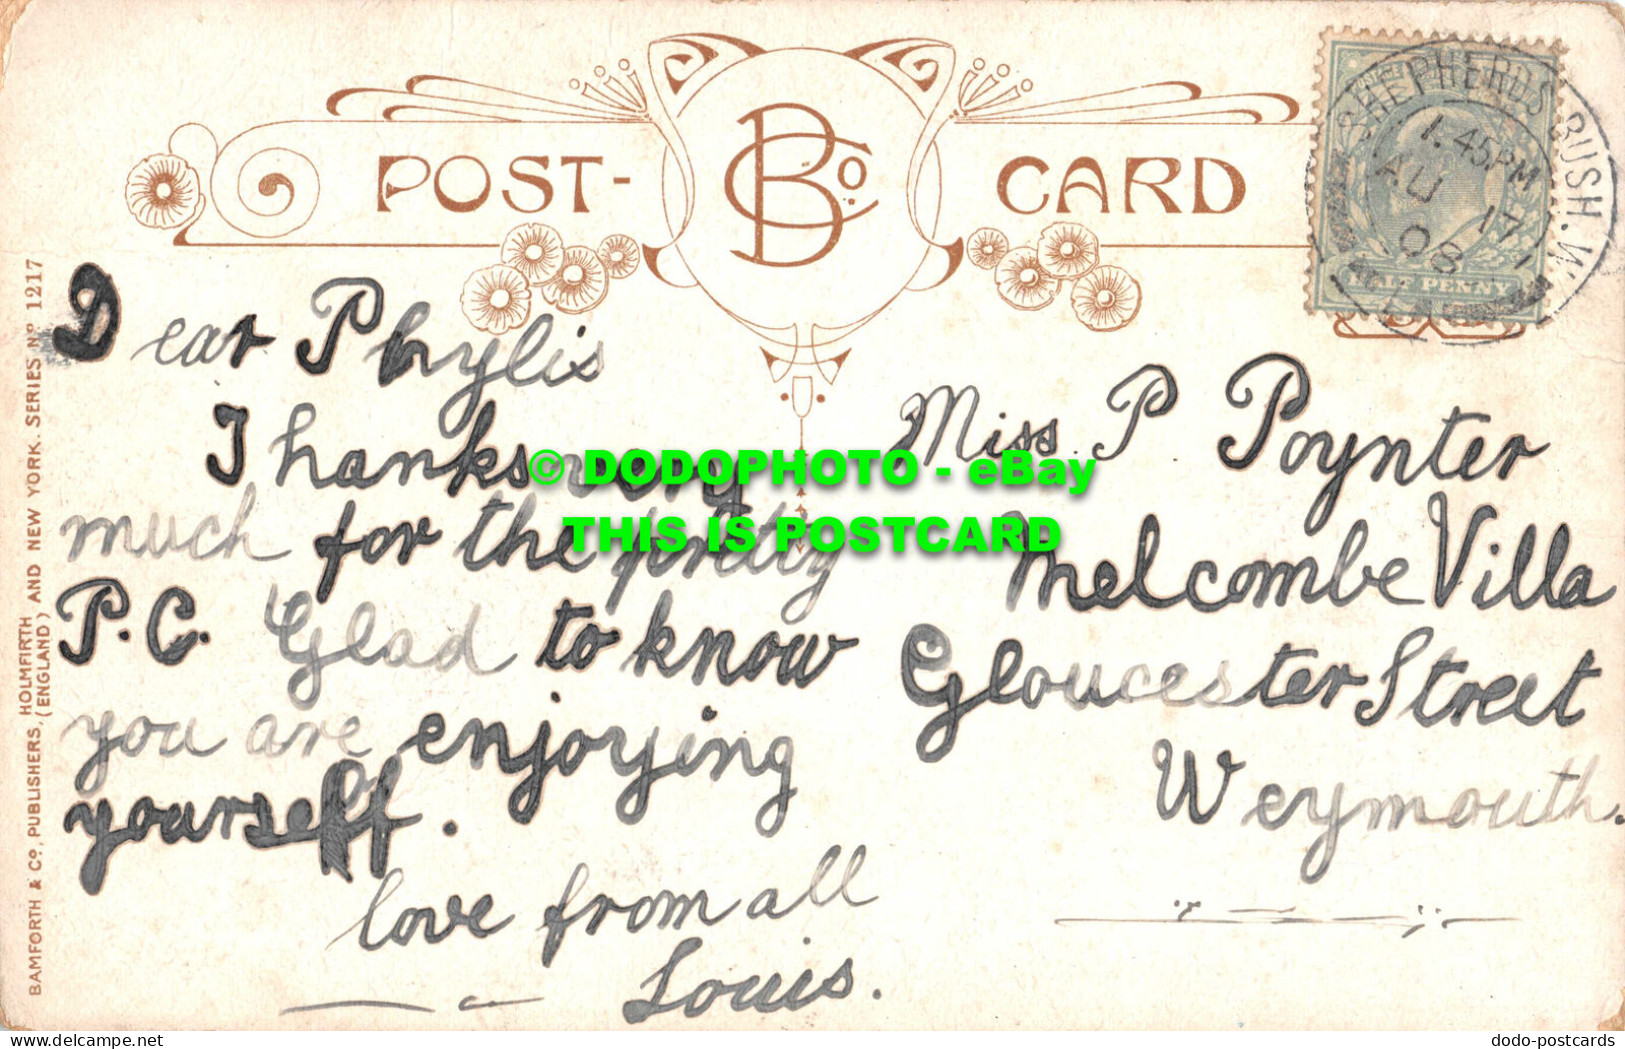 POST-
CARD
BCo.
SHEPHERDS BUSH. W.
1.45PM
AU 17
08
HALF PENNY
BAMFORTH & Co., PUBLISHERS, HOLMFIRTH (ENGLAND) AND NEW YORK. SERIES No 1217
Dear Phylis
Thanks very
much for the pretty
P.C. Glad to know
you are enjoying
yourself.
love from all
Louis.
Miss P Poynter
Melcombe Villa
Gloucester Street
Weymouth.
© DODOPHOTO - eBay
THIS IS POSTCARD
delcampe.net
dodo-postcards